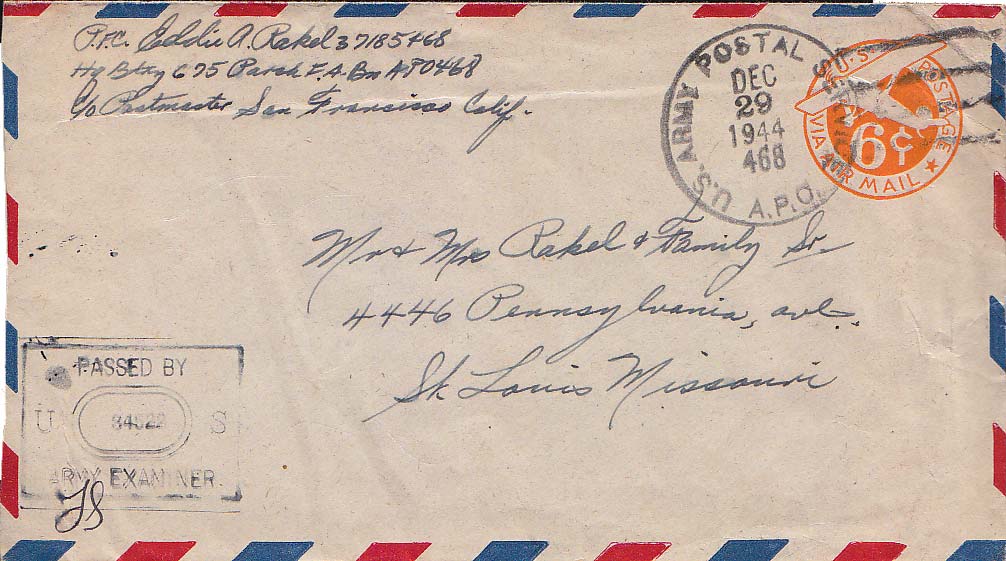 P.F.C. Eddie A. Rakel 37185468
Hq Btry 675 Parch F.A. Bn APO 468
C/o Postmaster San Francisco Calif.
U.S. ARMY POSTAL
DEC
29
1944
468
A.P.O.
U.S. POSTAGE
6¢
VIA AIR MAIL
Mr & Mrs Rakel & Family Sr.
4446 Pennsylvania, ave.
St. Louis Missouri
PASSED BY
U S
ARMY EXAMINER